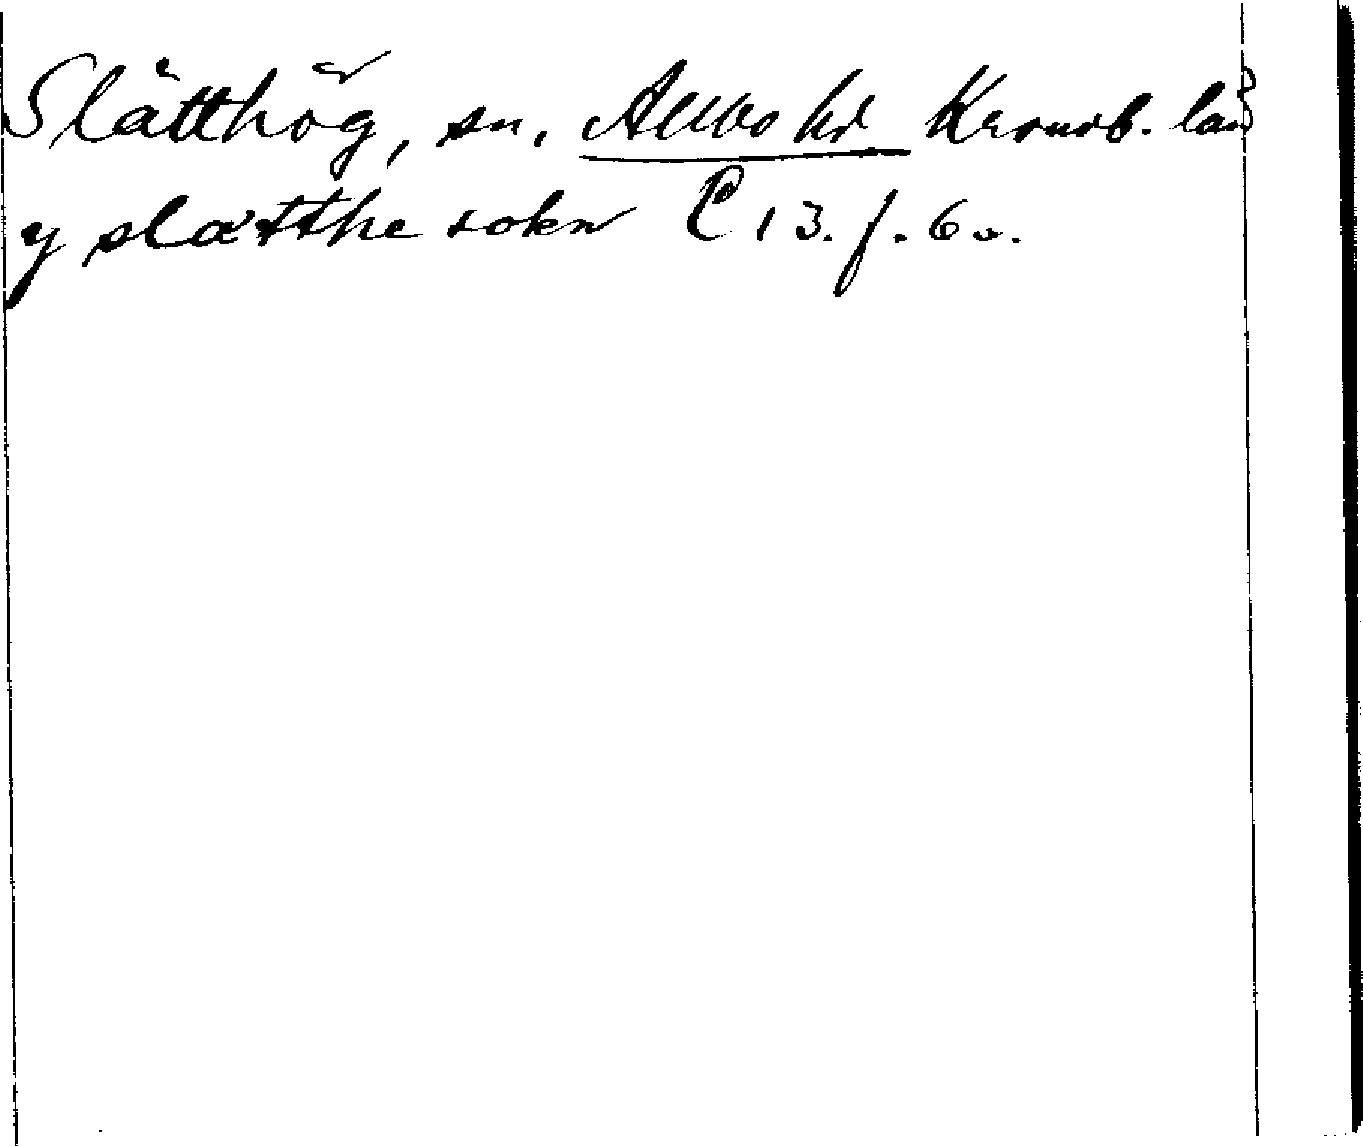 Slätthög, sn, Allbo hd Kronob. län
y slætthe sokn C 13. f. 6 v.